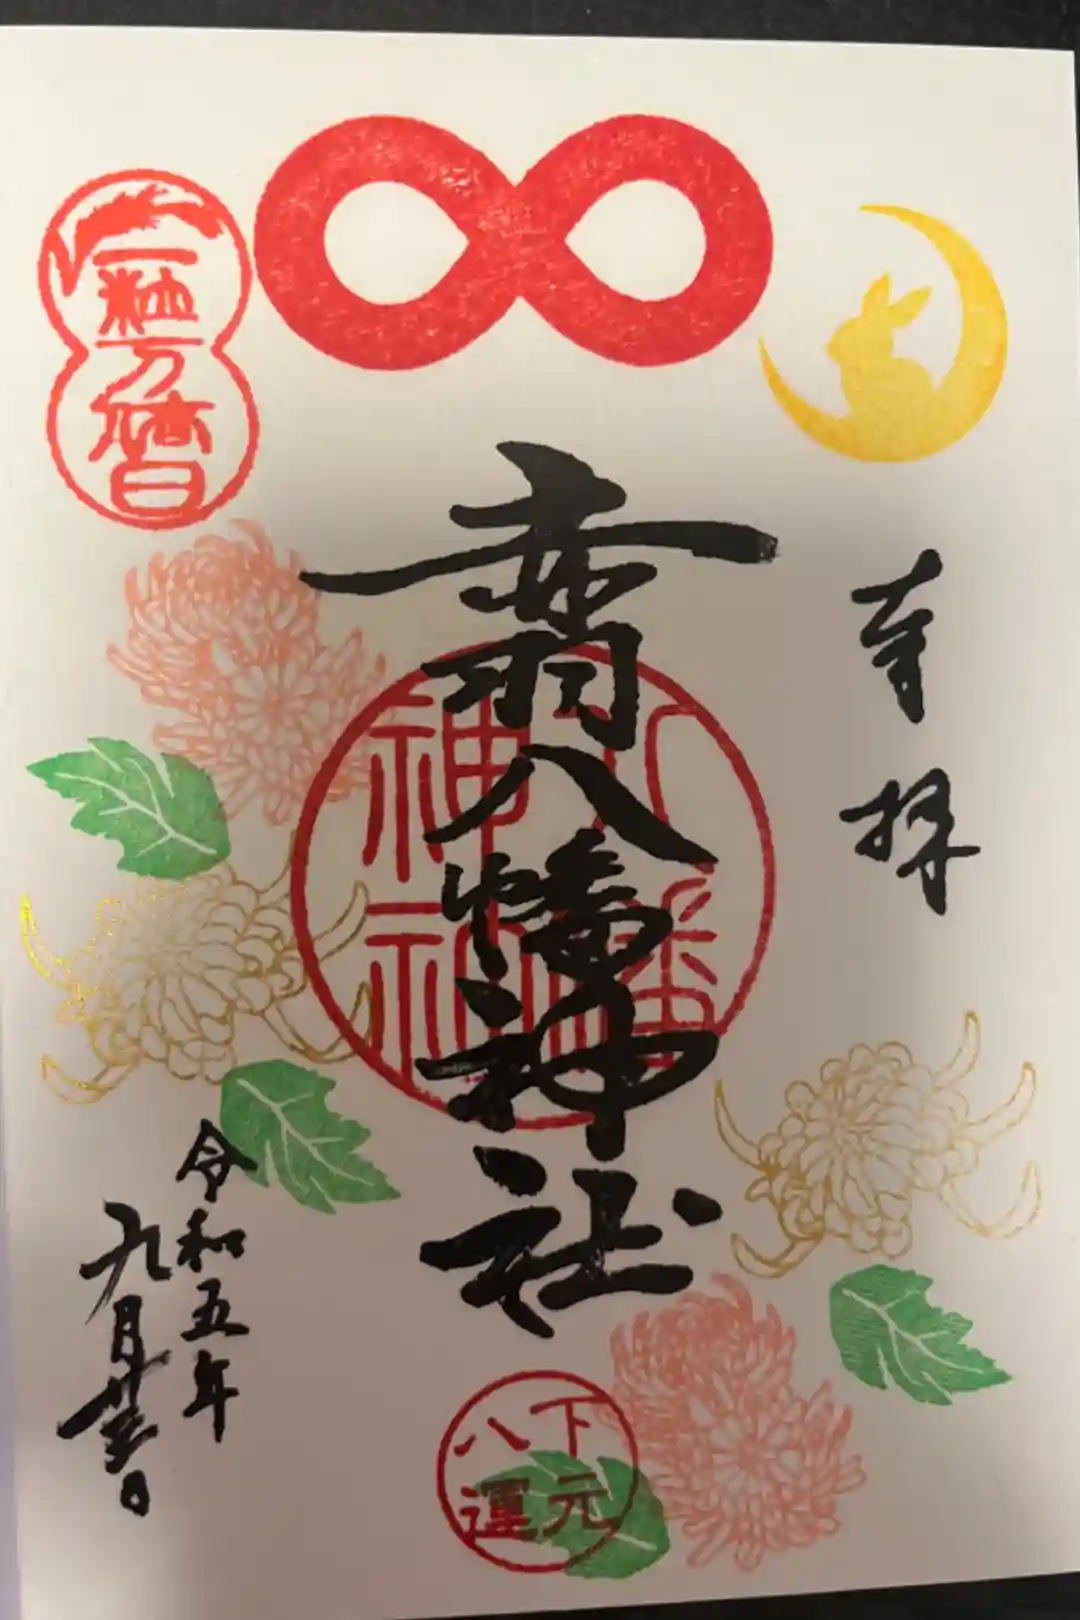 奉拝
赤羽八幡神社
八幡
神社
一粒万倍日
令和五年
九月廿日
下元
八運